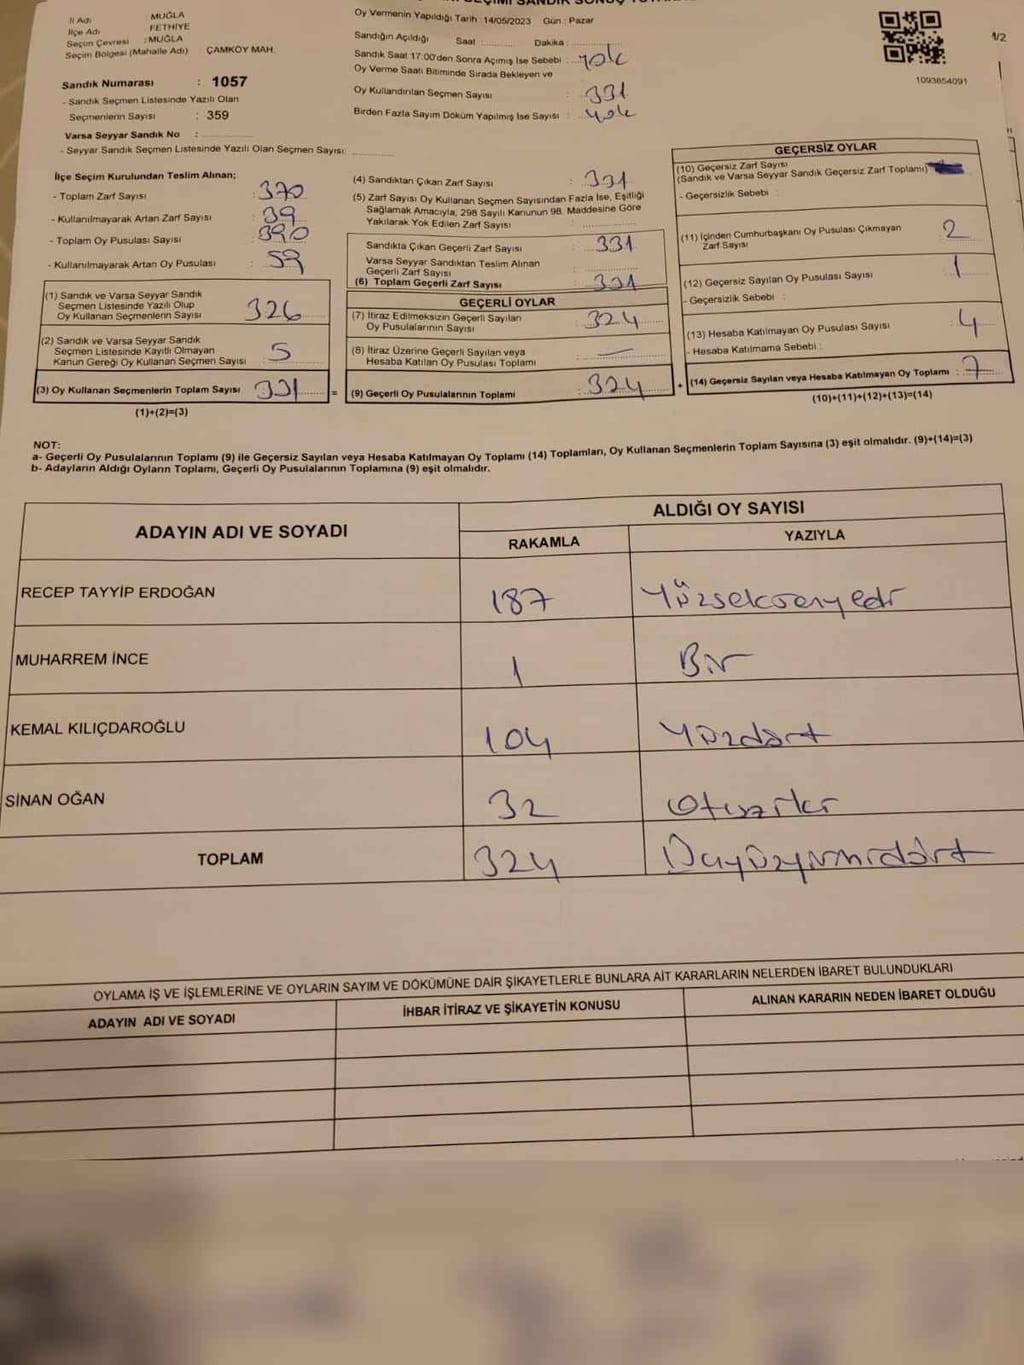 SEÇİMİ SANDIK SONUÇ
İl Adı : MUĞLA
İlçe Adı : FETHİYE
Seçim Çevresi : MUĞLA
Seçim Bölgesi (Mahalle Adı) : ÇAMKÖY MAH.
Sandık Numarası : 1057
- Sandık Seçmen Listesinde Yazılı Olan
Seçmenlerin Sayısı : 359
Varsa Seyyar Sandık No :
- Seyyar Sandık Seçmen Listesinde Yazılı Olan Seçmen Sayısı:
Oy Vermenin Yapıldığı Tarih : 14/05/2023 Gün : Pazar
Sandığın Açıldığı Saat : Dakika :
Sandık Saat 17:00'den Sonra Açımış İse Sebebi : yok
Oy Verme Saati Bitiminde Sırada Bekleyen ve
Oy Kullandırılan Seçmen Sayısı : 331
Birden Fazla Sayım Döküm Yapılmış İse Sayısı : yok
1/2
1093854091
İlçe Seçim Kurulundan Teslim Alınan;
- Toplam Zarf Sayısı : 370
- Kullanılmayarak Artan Zarf Sayısı : 39
- Toplam Oy Pusulası Sayısı : 390
- Kullanılmayarak Artan Oy Pusulası : 59
(1) Sandık ve Varsa Seyyar Sandık
Seçmen Listesinde Yazılı Olup
Oy Kullanan Seçmenlerin Sayısı 326
(2) Sandık ve Varsa Seyyar Sandık
Seçmen Listesinde Kayıtlı Olmayan
Kanun Gereği Oy Kullanan Seçmen Sayısı 5
(3) Oy Kullanan Seçmenlerin Toplam Sayısı 331
(1)+(2)=(3)
=
(4) Sandıktan Çıkan Zarf Sayısı : 331
(5) Zarf Sayısı Oy Kullanan Seçmen Sayısından Fazla İse, Eşitliği
Sağlamak Amacıyla; 298 Sayılı Kanunun 98. Maddesine Göre
Yakılarak Yok Edilen Zarf Sayısı :
Sandıkta Çıkan Geçerli Zarf Sayısı : 331
Varsa Seyyar Sandıktan Teslim Alınan
Geçerli Zarf Sayısı
(6) Toplam Geçerli Zarf Sayısı : 331
GEÇERLİ OYLAR
(7) İtiraz Edilmeksizin Geçerli Sayılan
Oy Pusulalarının Sayısı : 324
(8) İtiraz Üzerine Geçerli Sayılan veya
Hesaba Katılan Oy Pusulası Toplamı : —
(9) Geçerli Oy Pusulalarının Toplamı : 324
+
GEÇERSİZ OYLAR
(10) Geçersiz Zarf Sayısı
(Sandık ve Varsa Seyyar Sandık Geçersiz Zarf Toplamı)
- Geçersizlik Sebebi :
(11) İçinden Cumhurbaşkanı Oy Pusulası Çıkmayan
Zarf Sayısı 2
(12) Geçersiz Sayılan Oy Pusulası Sayısı 1
- Geçersizlik Sebebi :
(13) Hesaba Katılmayan Oy Pusulası Sayısı 4
- Hesaba Katılmama Sebebi :
(14) Geçersiz Sayılan veya Hesaba Katılmayan Oy Toplamı : 7
(10)+(11)+(12)+(13)=(14)
NOT:
a- Geçerli Oy Pusulalarının Toplamı (9) ile Geçersiz Sayılan veya Hesaba Katılmayan Oy Toplamı (14) Toplamları, Oy Kullanan Seçmenlerin Toplam Sayısına (3) eşit olmalıdır. (9)+(14)=(3)
b- Adayların Aldığı Oyların Toplamı, Geçerli Oy Pusulalarının Toplamına (9) eşit olmalıdır.
ADAYIN ADI VE SOYADI
ALDIĞI OY SAYISI
RAKAMLA YAZIYLA
RECEP TAYYİP ERDOĞAN 187 Yüzseksenyedi
MUHARREM İNCE 1 Bir
KEMAL KILIÇDAROĞLU 104 Yüzdört
SİNAN OĞAN 32 Otuziki
TOPLAM 324 Üçyüzyirmidört
OYLAMA İŞ VE İŞLEMLERİNE VE OYLARIN SAYIM VE DÖKÜMÜNE DAİR ŞİKAYETLERLE BUNLARA AİT KARARLARIN NELERDEN İBARET BULUNDUKLARI
ADAYIN ADI VE SOYADI İHBAR İTİRAZ VE ŞİKAYETİN KONUSU ALINAN KARARIN NEDEN İBARET OLDUĞU